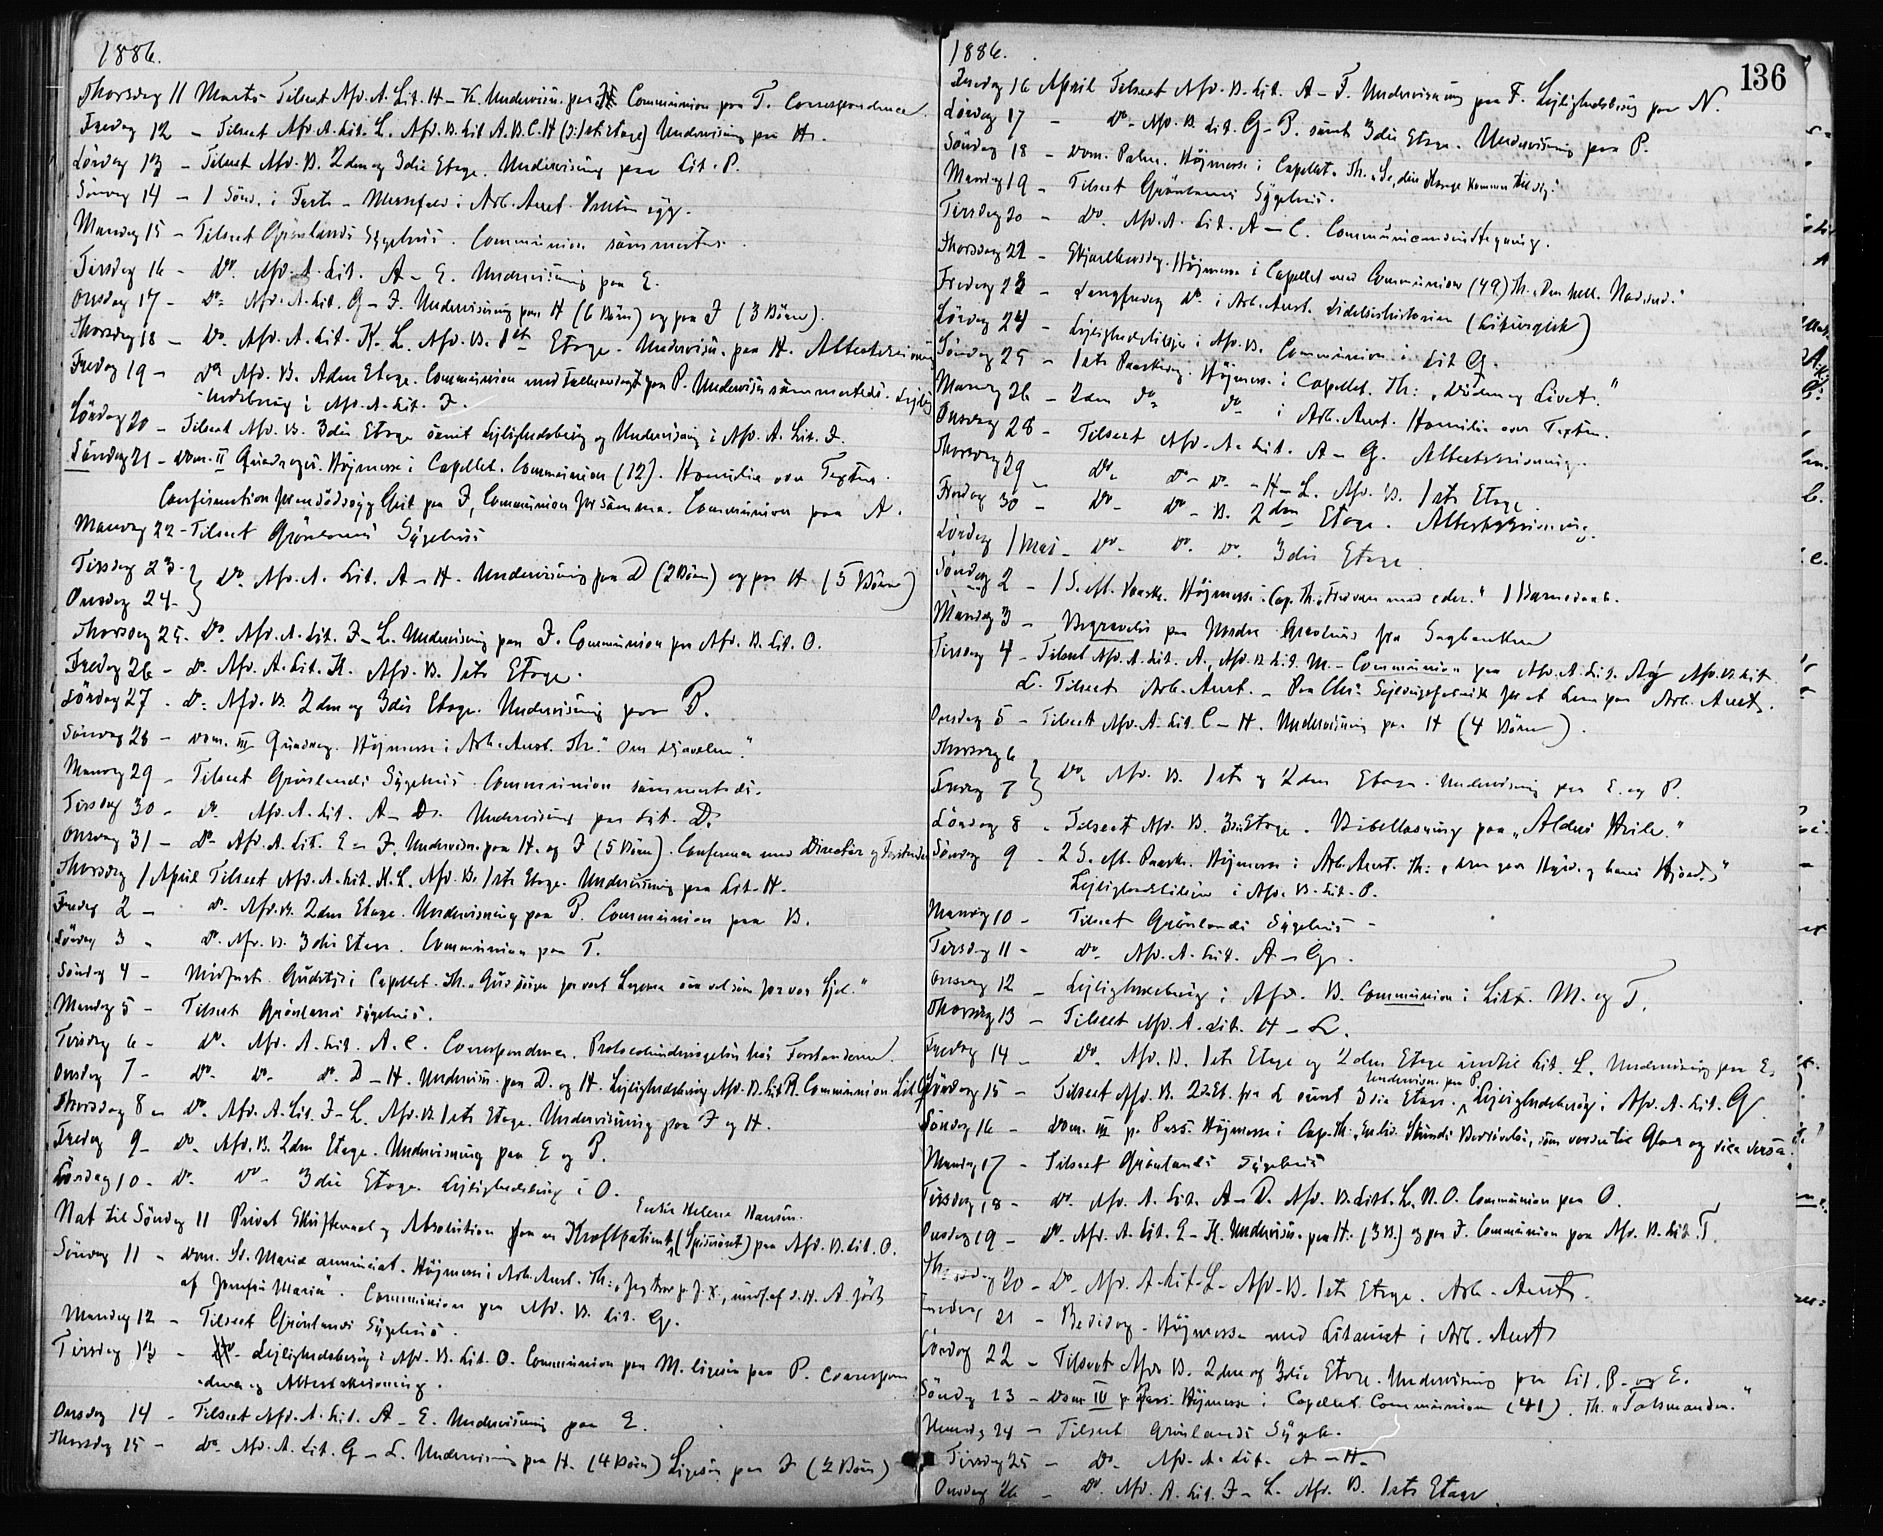 1886.
Thorsdag 11 Marts - Tilseet Afd. A. Lit. H - K. Undervisn. paa Communion paa T. Correspondence
Fredag 12 - Tilseet Afd. A. Lit. L. Afd. B. Lit A. B. C. H (o: 1ste Etage) Undervisning paa H.
Lördag 13 - Tilseet Afd. B. 2den og 3die Etage. Undervisning paa Lit. P.
Söndag 14 - 1 Sönd. i Faste - Messefald i Arb. Anst. syg.
Mandag 15 - Tilseet Grönlands Sygehus. Communion sammesteds.
Tirsdag 16 - Do. Afd. A. Lit. A - E. Undervisning paa E.
Onsdag 17 - Do. Afd. A. Lit. G - J. Undervisning paa H (6 Börn) og paa J (3 Börn).
Thorsdag 18 - Do. Afd. A. Lit. K. L. Afd. B. 1ste Etage. Undervisn. paa H. Attestskrivning
Fredag 19 - Do. Afd. B. Etage. Communion med paa P. Undervisn sammesteds. Lejlig-
hedsbesög i Afd. A. Lit. J.
Löndag 20 - Tilseet Afd. B. 3die Etage samt Lejlighedsbesög og Undervisning i Afd. A. Lit. J.
Söndag 21 - Dom. II Quadrages. Höjmesse i Capellet. Communion (12). Homilie over Texten.
Confirmation for en dödssyg paa J, Communion for samme. Communion paa A.
Mandag 22 - Tilseet Grönlands Sygehus
Tirsdag 23 -
Onsdag 24 - } Do. Afd. A. Lit. A - H. Undervisning paa D (2 Börn) og paa H (5 Börn)
Thorsdag 25. Do. Afd. A. Lit. J - L. Undervisning paa J. Communion paa Afd. B. Lit. O.
Fredag 26 - Do. Afd. A. Lit. K. Afd. B. 1ste Etage.
Lördag 27 - Do. Afd. B. 2den og 3die Etage. Undervisning paa P.
Söndag 28 - Dom. III Quadrag. Höjmesse i Arb. Anst. Th. "Om Djævelen."
Mandag 29 - Tilseet Grönlands Sygehus. Communion sammesteds.
Tirsdag 30 - Do. Afd. A. Lit. A - D. Undervisning paa Lit. D.
Onsdag 31 - Do. Afd. A. Lit. E - J. Undervisn. paa H. og J (5 Börn). Conference med Directör og Forstander
Thorsdag 1 April Tilseet Afd. A. Lit. K. L. Afd. B. 1ste Etage. Undervisning paa Lit. H.
Fredag 2 - Do. Afd. B. 2den Etage. Undervisning paa P. Communion paa B.
Lördag 3 - Do. Afd. B. 3die Etage. Communion paa T.
Söndag 4 - Midfaste. Gudstj. i Capellet. Th. "Gud sörger for vort Legeme saavelsom for vor Sjæl."
Mandag 5 - Tilseet Grönlands Sygehus.
Tirsdag 6 - Do. Afd. A. Lit. A. C. Correspondence. hos Forstanderen.
Onsdag 7 - Do. Do. Do. D - H. Undervisn. paa D. og H. Lejlighedsbesög Afd. B. Lit R. Communion Lit G
Thorsdag 8 - Do. Afd. A. Lit. J - L. Afd. B. 1ste Etage. Undervisning paa J og H.
Fredag 9 - Do. Afd. B. 2den Etage. Undervisning paa E og P.
Lördag 10 - Do. Do. 3die Etage. Lejlighedsbesög i O.
Helene Hansen.
Nat til Söndag 11 Privat Skriftemaal og Absolution for en Kræftpatient (Spiserört) paa Afd. B. Lit. O.
Söndag 11 - Dom. St. Mariæ annunciat. Höjmesse i Arb. Anst. Th.: "Jeg troer p. J. X., undf. af d. H. A. födt
af Jomfru Maria". Communion paa Afd. B. Lit. G.
Mandag 12 - Tilseet Grönlands Sygehus.
Tirsdag 13 - Lejlighedsbesög i Afd. B. Lit. O. Communion paa M. ligesaa paa P. Correspon-
dence og Attestskrivning.
Onsdag 14 - Tilseet Afd. A. Lit. A - E. Undervisning paa E.
Thorsdag 15 - Do. Afd. A. Lit. G - L. Undervisning paa H. (4 Börn) Ligesaa paa J (2 Börn)
1886.
136
Fredag 16 April Tilseet Afd. B. Lit. A - F. Undervisning paa F. Lejlighedsbesög paa N.
Lördag 17 - Do. Afd. B. Lit. G - P. samt 3die Etage. Undervisning paa P.
Söndag 18 - Dom. Palm. Höjmesse i Capellet. Th. "Se, din Konge kommer til dig."
Mandag 19 - Tilseet Grönlands Sygehus.
Tirsdag 20 - Do. Afd. A. Lit. A - C. Communicandindtegning.
Thorsdag 22 - Skjærthorsdag. Höjmesse i Capellet med Communion (49) Th. "Den hell. Nadverd."
Fredag 23 - Langfredag Do. i Arb. Anst. Lidelseshistorien (Liturgisk)
Lördag 24 - i Afd. B. Communion i Lit G.
Söndag 25 - 1ste Paaskedag. Höjmesse i Capellet. Th: "Döden og Livet."
Mandag 26 - 2den Do. Do. i Arb. Anst. Homilie over Texten.
Onsdag 28 - Tilseet Afd. A. Lit. A - G. Attestskrivning.
Thorsdag 29 - Do. Do. Do. - H - L. Afd. B. 1ste Etage.
Fredag 30 - Do. Do. B. 2den Etage. Attestskrivning.
Lördag 1 Mai - Do. Do. Do. 3die Etage.
Söndag 2 - 1 S. eft. Paaske. Höjmesse i Cap. Th. "Fred være med eder." 1 Barnedaab.
Mandag 3 - Begravelse paa Nordre Gravlund fra Sagbanken
Tirsdag 4 - Tilseet Afd. A. Lit. A., Afd. B. Lit. M. - Communion paa Afd. A. Lit. A og Afd. B. Lit.
L. Tilseet Arb. Anst. - Paa Chr. for at paa Arb. Anst.
Onsdag 5 - Tilseet Afd. A. Lit. C - H. Undervisning paa H (4 Börn).
Thorsdag 6
Fredag 7 } Do. Afd. B. 1ste og 2den Etage. Undervisning paa E. og P.
Lördag 8 - Tilseet Afd. B. 3die Etage. Bibellæsning paa "Aldres Hvile."
Söndag 9 - 2 S. eft. Paaske. Höjmesse i Arb. Anst. Th: "den gode Hyrde og hans Hjord."
i Afd. B. Lit. O.
Mandag 10 - Tilseet Grönlands Sygehus -
Tirsdag 11 - Do. Afd. A. Lit. A - G.
Onsdag 12 - Lejlighedsbesög i Afd. B. Communion i Litt. M. og T.
Thorsdag 13 - Tilseet Afd. A. Lit. H - L.
Fredag 14 - Do. Afd. B. 1ste Etage og 2den Etage indtil Lit. L. Undervisning paa E.
Undervisn. paa P.
Lördag 15 - Tilseet Afd. B. 2d. Et. fra L samt 3die Etage. Lejlighedsbesög i Afd. A. Lit. G
Söndag 16 - Dom. III p. Pasc. Höjmesse i Cap. Th. "En liv. Stunds Bedrövelse, som vorder til Glæde og vice versa."
Mandag 17 - Tilseet Grönlands Sygehus
Tirsdag 18 - Do. Afd. A. Lit. A - D. Afd. B. Litt. L. N. O. Communion paa O.
Onsdag 19 - Do. Afd. A. Lit. E - K. Undervisn. paa H. (3 B.) og paa J. Communion paa Afd. B. Lit. T.
Thorsdag 20 - Do. Afd. A. Lit. L - Afd. B. 1ste Etage. Arb. Anst.
Fredag 21 - Bededag. Höjmesse med Litaniet i Arb. Anst
Lördag 22 - Tilseet Afd. B. 2den og 3die Etage. Undervisning paa Lit. B. og E.
Söndag 23 - Dom. IV p. Pasc. Höjmesse i Capellet. Communion (41). Th. "Talsmanden."
Mandag 24 - Tilseet Grönlands Sygeh.
Tirsdag 25 - Do. Afd. A. Lit. A - H.
Onsdag 26 - Do. Afd. A. Lit. J - L. Afd. B. 1ste Etage.